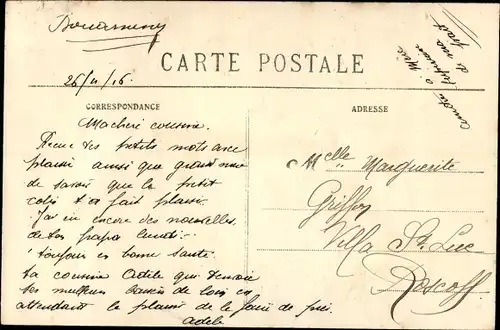 Douarnenez
CARTE POSTALE
26/11/16.
CORRESPONDANCE
ADRESSE
Ma cheri cousine.
Recue tes petits mots avec
plaisir ainsi que grand mère
de savoir que le petit
colis t'a fait plaisir.
J'ai eu encore des nouvelles
de ton papa lundi
toujours en bonne santé.
ta cousine Adèle qui t'envoie
ses meilleurs baisers de loin en
attendant le plaisir de le faire de près.
Adèle
Melle Marguerite
Griffon
Villa St Luc
Roscoff